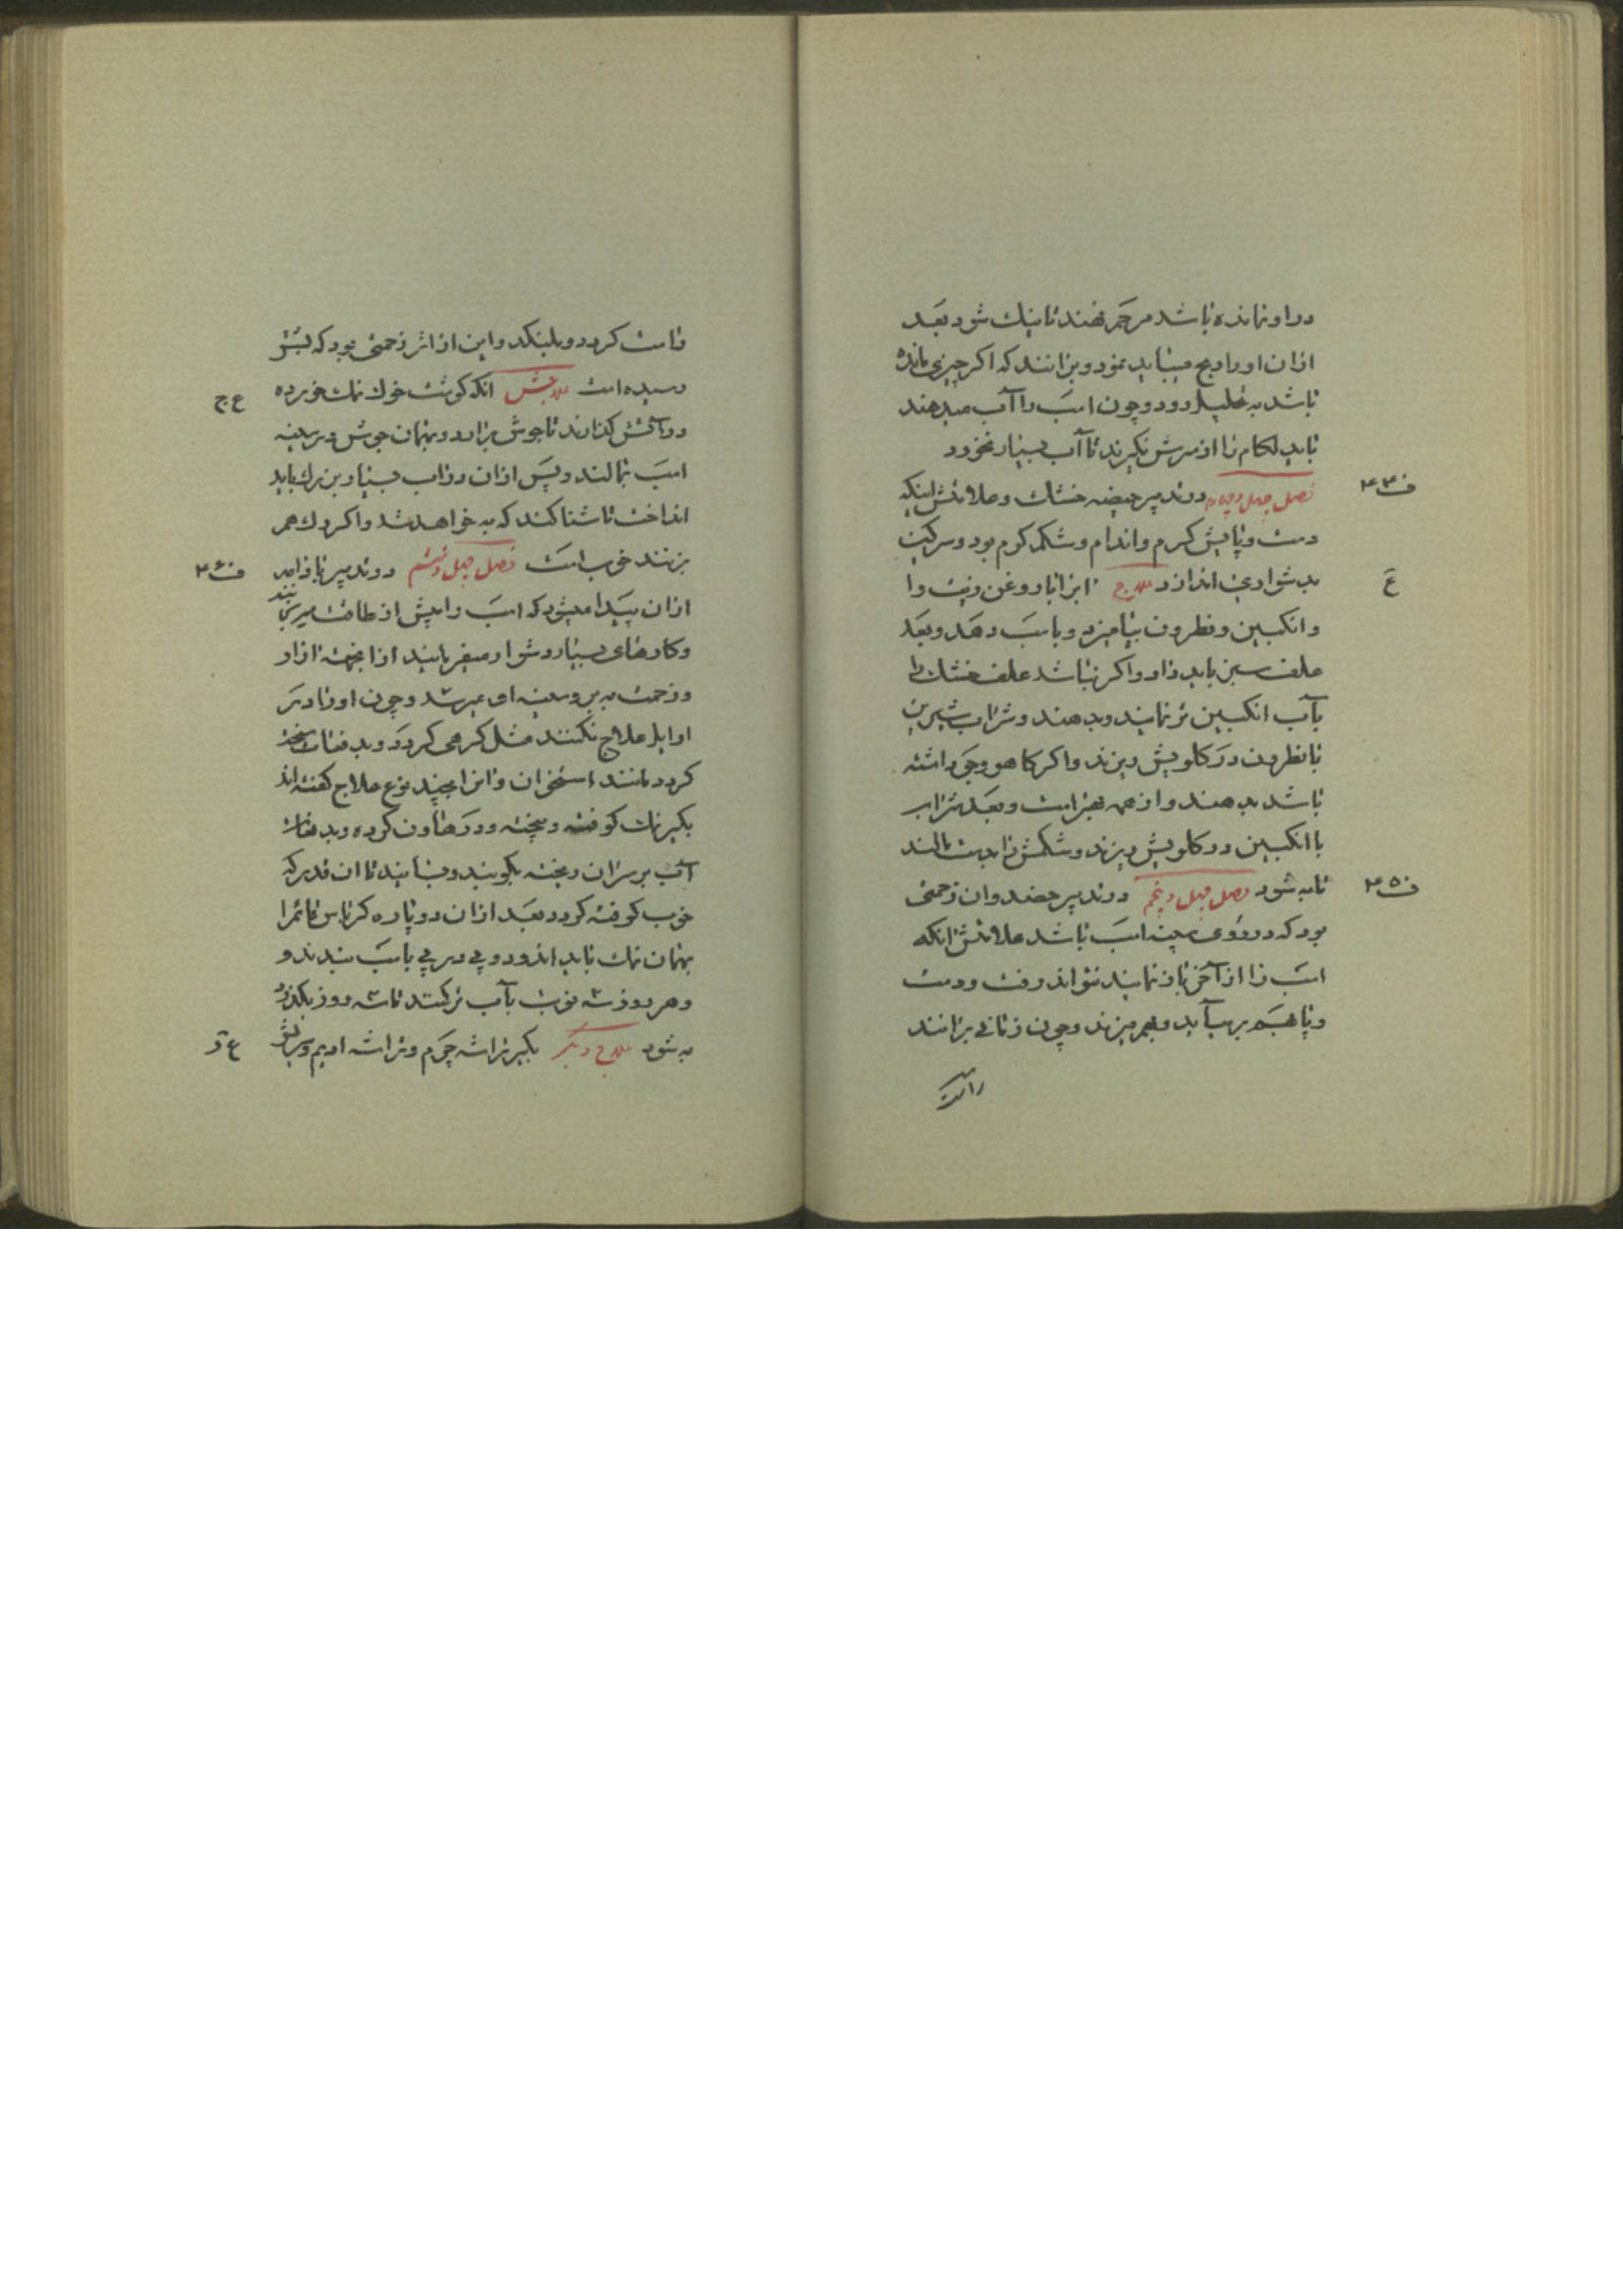 در او نمانده باشد مرهم نهند تا نیك شود بعد
ازان او را دمج میباید نمود و برانند که اکر چیزی مانده
باشد به تحلیل رود و چون اسب را آب میدهند
باید لکام را از سرش نکیرند تا آب بسیار نخورد
ف ۴۴
فصل چهل و چهارم در تدبیر حیضه خشك و علامتش اینکه
دست و پایش کرم و اندام و شکم کرم بود و سرکین
بدشواری اندازد علاج ابرا با روغن زیت را
ع
و انکبین و نطرون بیامیزد و باسب دهد و بعد
علف سبز باید داد و اکر نباشد علف خشك را
بآب انکبین تر نمایند و بدهند و شراب شیرین
با نطرون در کلویش ریزند و اکر کاهو و جو داشته
باشد بدهند و از همه بهتر است و بعد شراب
با انکبین در کلویش ریزند و شکمش را بدست مالند
تا به شود فصل چهل و پنجم در تدبیر حضد و ان زحمتی
ف ۴۵
بود که در روی سینه اسب باشد علامتش انکه
اسب را از آخر باز نمایند نتواند رفت و دست
و پا بهم بر میآید و بهم میزند و چون زمانی برانند
راست
راست کردد و بلنکد و این از اثر زحمتی بود که پیش
رسیده است علاجش انکه کوشت خوك نمك خورده
ع ج
در آتش کذارند تا جوش برارد و بهمان جوش در سینه
اسب بمالند و پس ازان در اب بسیار بزرك باید
انداخت تا شنا کند که به خواهد شد و اکر رك هم
بزنند خوب است فصل چهل و ششم در تدبیر باد زامه
ف ۴۶
ازان پیدا میشود که اسب را بیش از طاقت میرنجانند
و کارهای بسیار دشوار میفرمایند ازانجهة ازار
و زحمت به بر و سینه او میرسد و چون او را در
اوایل علاج نکنند مثل کرهی کردد و بدفعات سخت
کردد مانند استخوان و انرا بچند نوع علاج کفته اند
بکیر نمك کوفته و بیخته و در هاون کرده و بدفعات
آب بر سر ان ریخته بکوبند و بسایند تا ان قدر که
خوب کوفته کردد بعد ازان دو پاره کرباس خام را
بهمان نمك باید اندود و پی در پی باسب بندند و
و هر روز سه نوبت بآب تر کنند تا سه روز بکذرد
به شود علاج دیکر بکیر تراشه چرم و تراشه ادیم و سریش
ع د